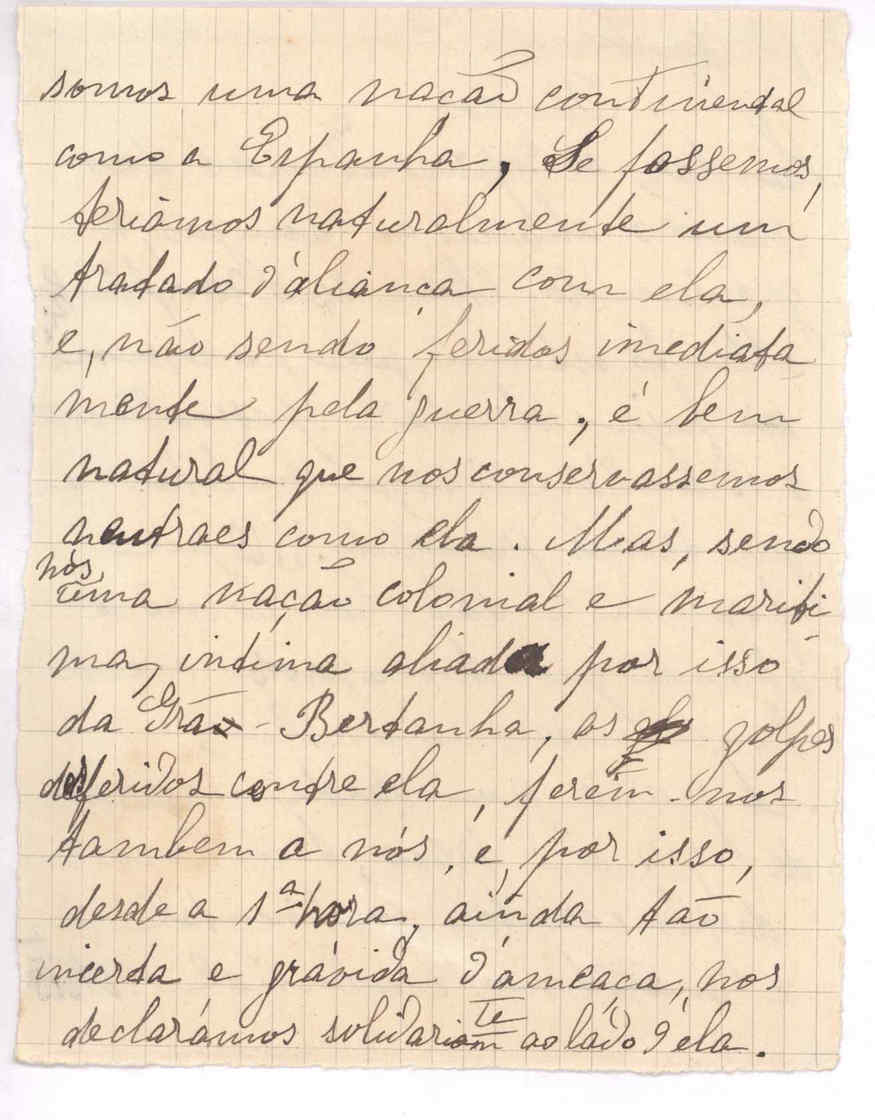 somos uma nação continental
como a Espanha, Se fossemos,
teriâmos naturalmente um
tratado d'aliança com ela,
e, não sendo feridos imediata
mente pela guerra, é bem
natural que nos conservassemos
neutraes como ela. Mas, sendo
nós,
uma nação colonial e mariti-
ma, intima aliada por isso
da Grã-Bertanha, os golpes
desferidos contre ela, ferem-nos
tambem a nós, e, por isso,
desde a 1ª hora, ainda tão
incerta e grávida d'ameaça, nos
declarámos solidariamte ao lado d'ela.